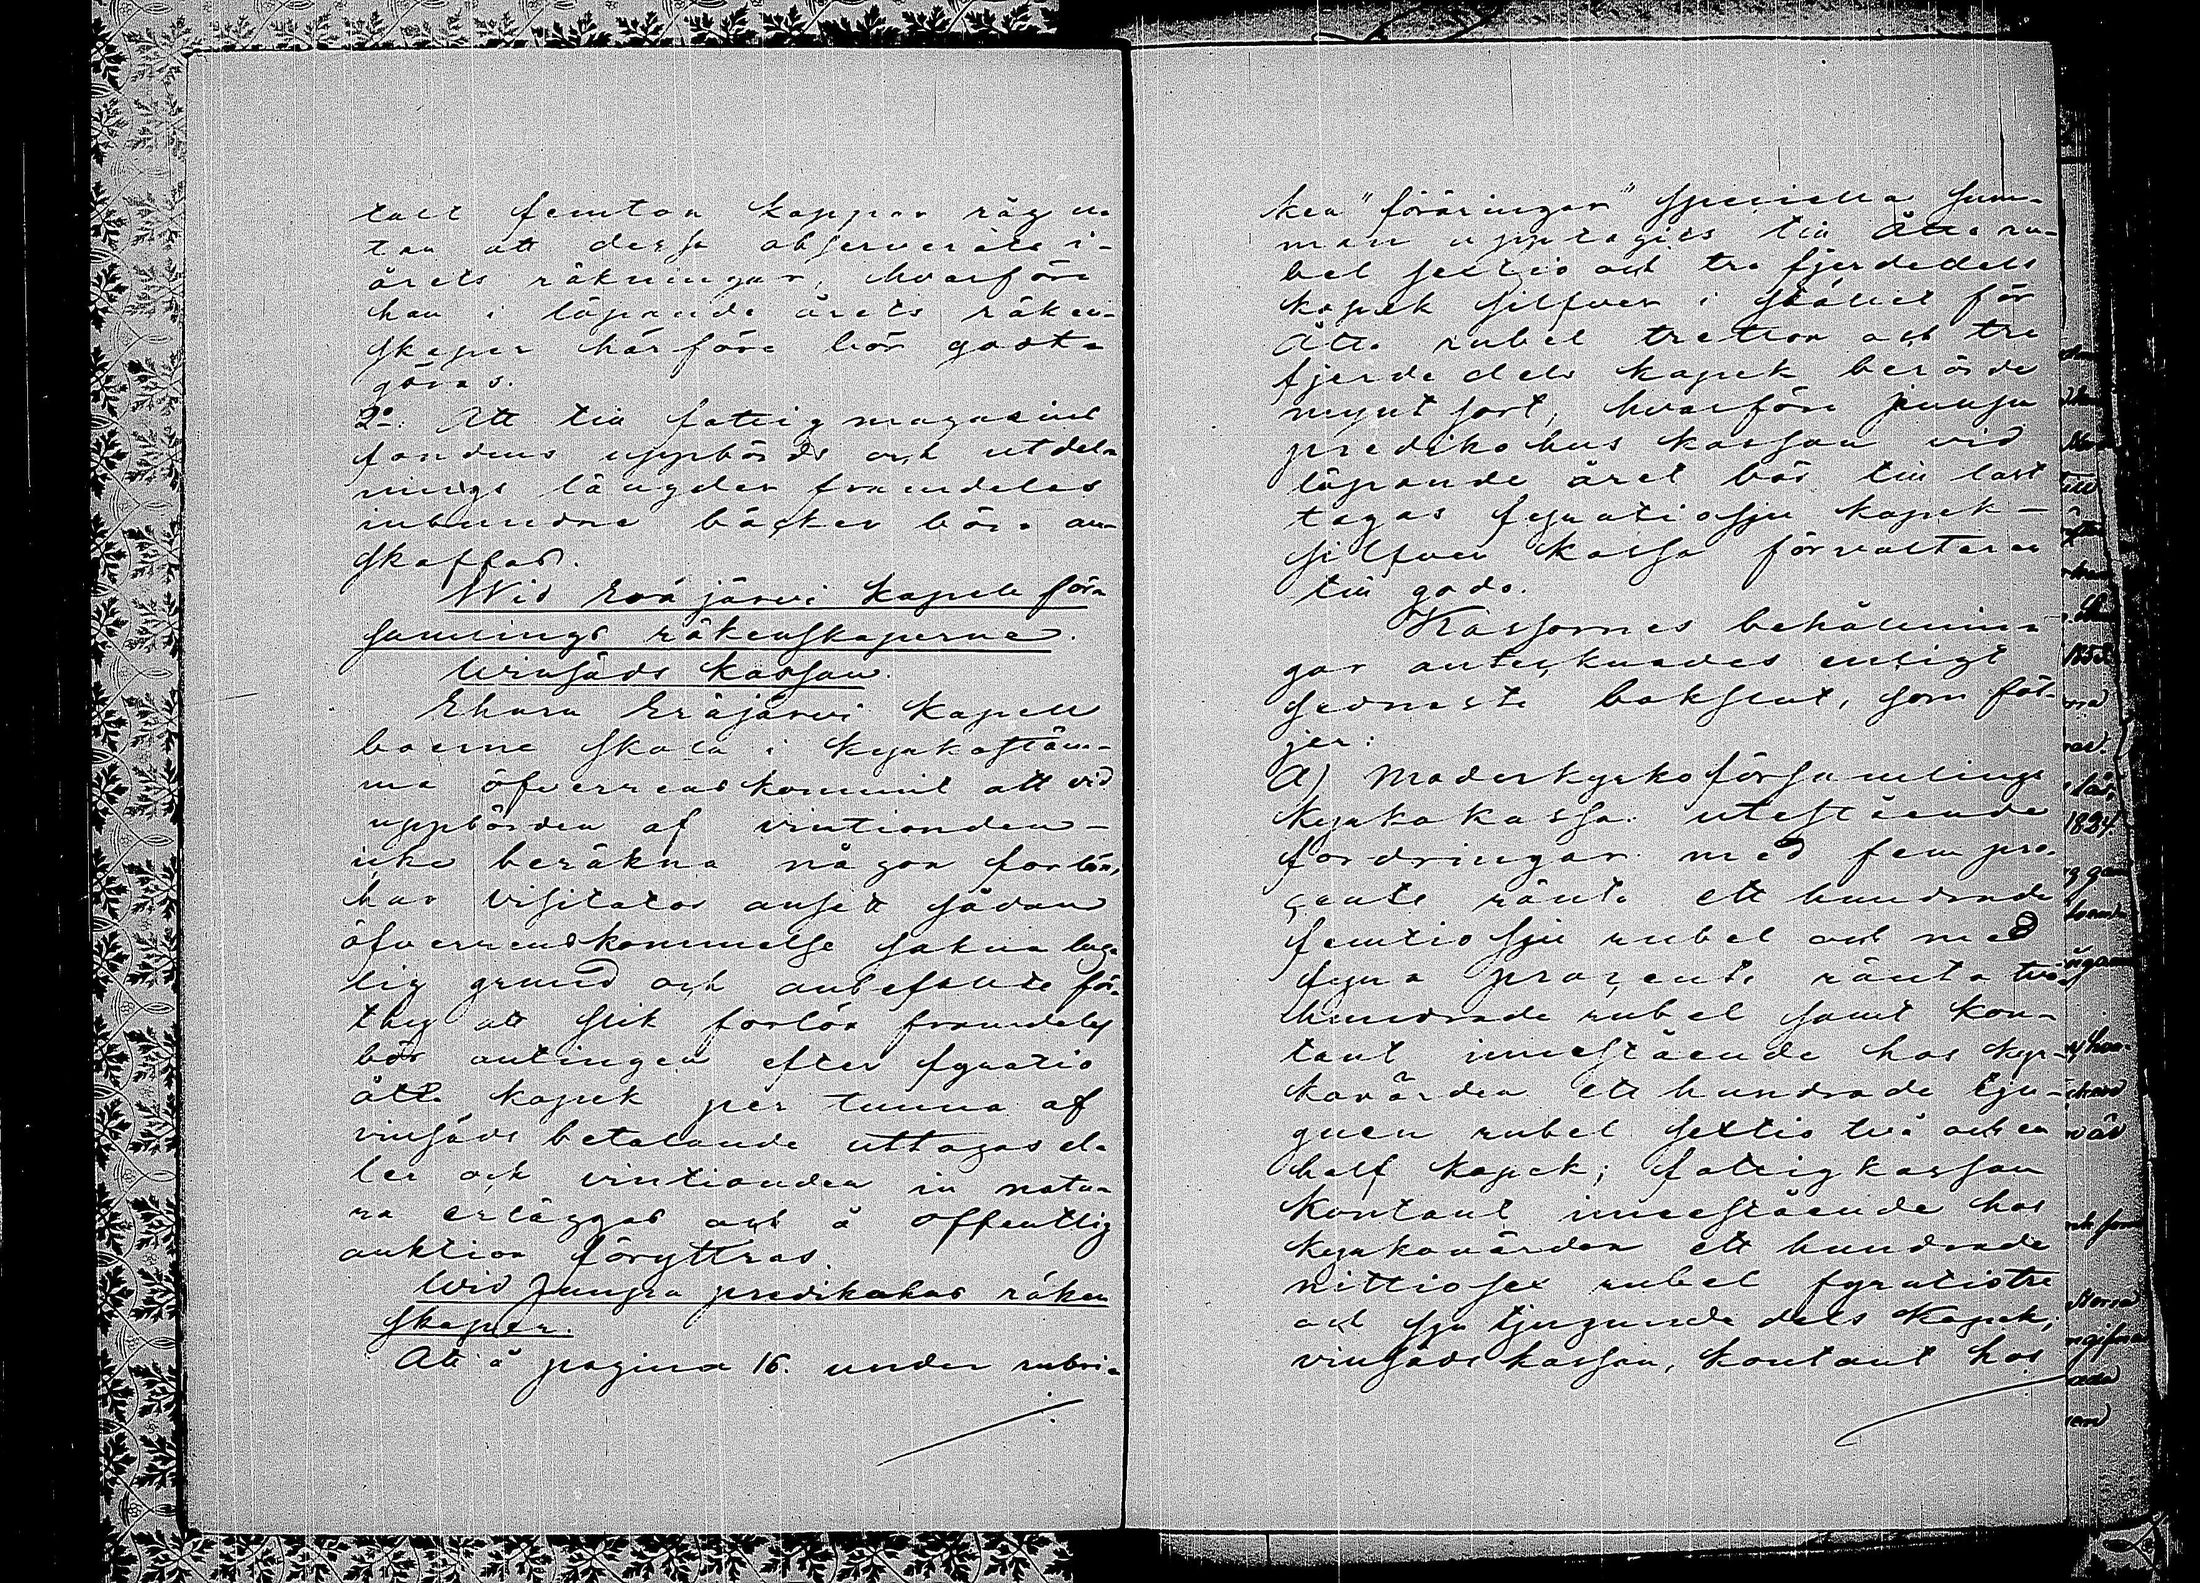 talt femton kappar råg u-
tan att dessa observerats i
årets räkningar, hvarföre
han i löpande årets räken-
skaper härföre bör godt-
göras.
2o. Att till fattigmagasins
fondens uppbörds och utdel-
nings längder framdeles
inbundne böcker böra an-
skaffas.
Wid Eräjärvi kapellför-
samlings räkenskaperne.
Winsäds kassan.
Ehuru Eräjärvi Kapell
boerne skola i kyrkostäm-
ma öfverenskommit att vid
uppbörden af vintionden
icke beräkna någon forlön,
har Visitator ansett sådan
öfverenskommelse sakna lag-
lig grund och anbefallte för-
thy att slik forlön framdeles
bör antingen efter fyratio
åtta kopek per tunna af
vinsäds betalande uttagas el-
ler ock vintionden in natu-
ra erläggas och å offentlig
auktion föryttras.
Wid Juupa predikohus räken
skaper.
Att å pagina 16. under rubri-
ken "föräringar" speciella sum-
man upptagits till Åtta ru-
bel sextio och tre fjerdedels
kopek silfver i stället för
Åtta rubel tretton och tre
fjerdedels kopek berörde
myntsort, hvarföre
predikohus kassan vid
löpande året bör till last
tagas fyratiosju kopek
silfver kassa förvaltaren
till godo.
Kassornes behållnin-
gar antecknades enligt
sednaste bokslut, som föl-
jer:
A) Moderkyrkoförsamlings
kyrkokassa: utestående
fordringar med fem pro-
cents ränta ett hundrade
femtiosju rubel och med
fyra procents ränta två
hundrade rubel samt kon-
tant innestående hos kyr-
kovärden ett hundrade tju-
guen rubel sextio två och en
half kopek; fattigkassan
Kontant innestående hos
kyrkovärden ett hundrade
nittiosex rubel fyratiotre
och sju tjugunde dels Kopek;
vinsäds kassan, kontant hos